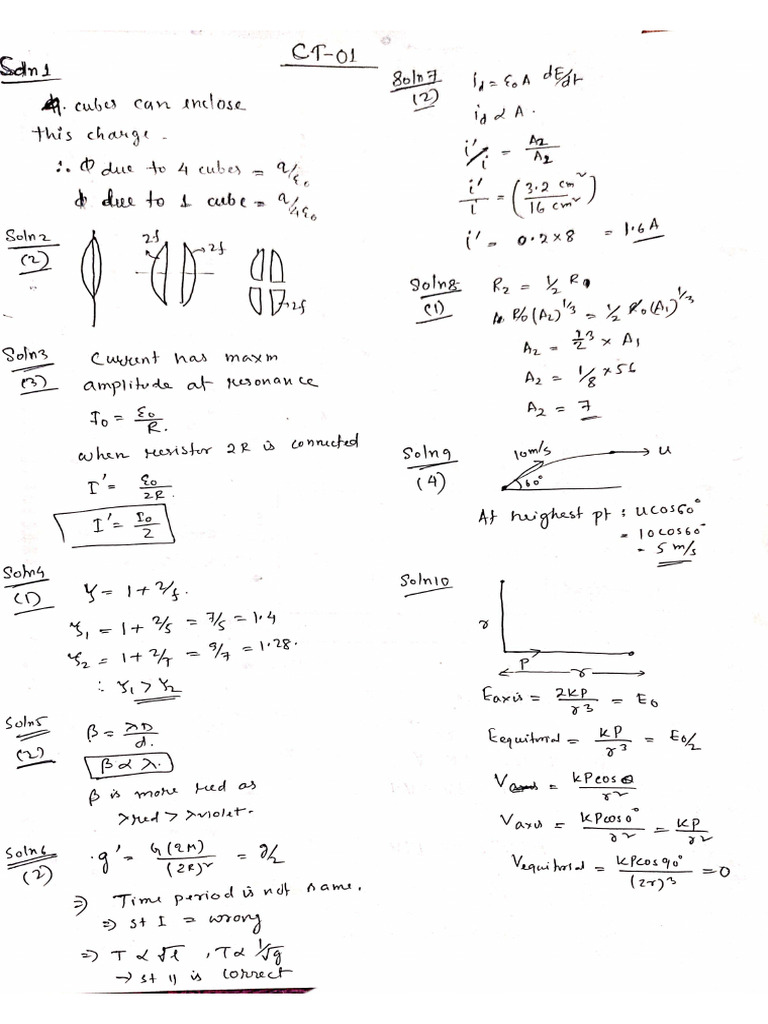 CT-01
Soln 1
4. cubes can enclose
this charge.
∴ ϕ due to 4 cubes = q/ε₀
ϕ due to 1 cube = q/4ε₀
Soln 2
(2)
2f
2f
2f
Soln 3
(3)
Current has maxm
amplitude at resonance
I₀ = ε₀/R.
when resistor 2R is connected
I' = ε₀/2R.
I' = I₀/2
Soln 4
(1)
γ = 1 + 2/f.
γ₁ = 1 + 2/5 = 7/5 = 1.4
γ₂ = 1 + 2/7 = 9/7 = 1.28.
∴ γ₁ > γ₂
Soln 5
(2)
β = λD/d.
β ∝ λ.
β is more red as
λred > λviolet.
Soln 6
(2)
g' = G(2M)/(2R)² = g/2
⇒ Time period is not same.
⇒ st I = wrong
⇒ T ∝ √l , T ∝ 1/√g
→ st II is correct
Soln 7
(2)
i_d = ε₀ A dE/dt
i_d ∝ A.
i'/i = A₂/A₂
i'/i = (3.2 cm²/16 cm²)
i' = 0.2 × 8 = 1.6 A
Soln 8
(1)
R₂ = 1/2 R
R₀(A₂)^1/3 = 1/2 R₀(A₁)^1/3
A₂ = 1/2³ × A₁
A₂ = 1/8 × 56
A₂ = 7
Soln 9
(4)
10 m/s
u
60°
At heighest pt : u cos 60°
= 10 cos 60°
= 5 m/s
Soln 10
r
P
r
E axis = 2KP/r³ = E₀
E equitorial = KP/r³ = E₀/2
V = KP cos θ/r²
V axis = KP cos 0°/r² = KP/r²
V equitorial = KP cos 90°/(2r)³ = 0